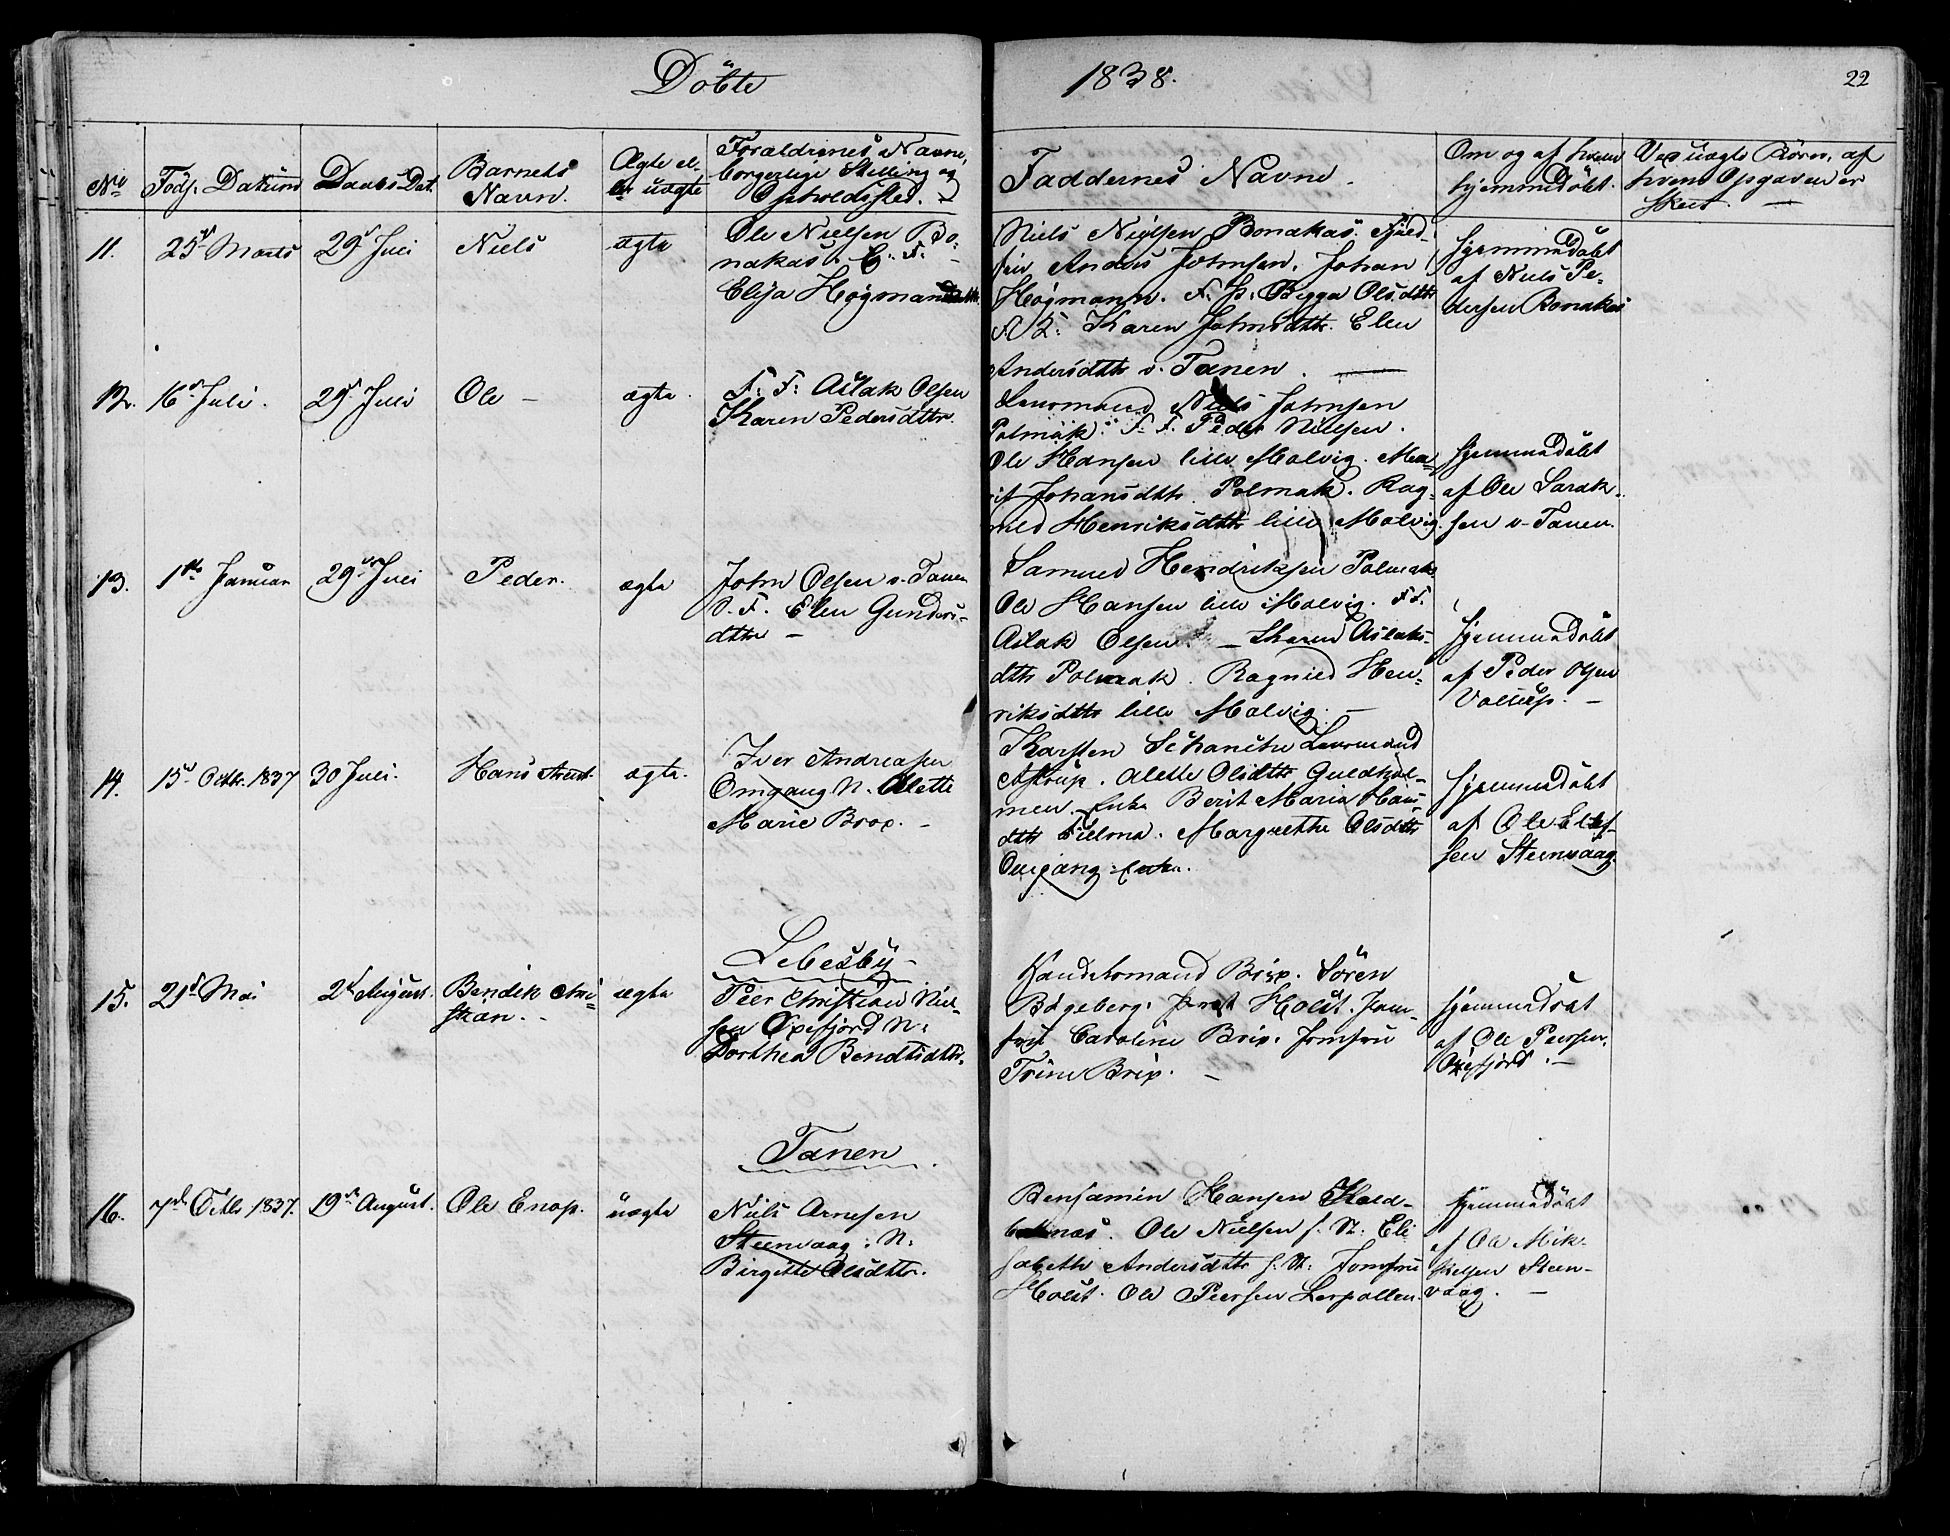 Döbte
1838.
22
No
Föds. Datum
Daabs Dat.
Barnets
Navn.
Ægte el-
ler uægte
Forældrenes Navne,
borgerlige Stilling og
Opholdssted.
Faddernes Navne.
Om og af hvem
hjemmedöbt.
Ved uægte Börn, af
hvem Opgaven er
skeet.
11.
25d Marts
29d Juli
Niels
ægte
Ole Nielsen Bo-
nakas. E. F.
Elisa Högman
Niels Nielsen Bonakas. Fjeld-
fin Anders Johnsen. Johan
Högmann. F. P. Bigga Olsdttr
Karen Johnsdttr. Elen
Andersdttr v. Tanen.
hjemmedöbt
af Niels Pe-
dersen Bonakas
12.
16d Juli.
29d Juli
Ole -
ægte.
F. F. Aslak Olsen
Karen Pedersdttr.
Lensmand Niels Johnsen
Polmak. F. F. Peder Nielsen.
Ole Hansen lille Molvig. Ma-
rit Johansdttr Polmak. Rag-
nild Henriksdttr lille Molvig.
hjemmedöbt
af Ole Sarak-
sen v. Tanen.
13.
1ste Januar
29d Juli
Peder.
ægte
John Olsen v. Tanen
Elen Gunders-
dttr -
Samuel Hendriksen Polmak
Ole Hansen lille Molvig. F. F.
Aslak Olsen. - Karen Aslaks-
dttr Polmak. Ragnild Hen-
riksdttr lille Molvig. -
hjemmedöbt
af Peder Olsen
14.
15d Octbr. 1837
30 Juli.
Hans
ægte.
Iver Andreasen
Omgang N. Alette
Marie Brox. -
Karsten Schanche Lensmand
Astrup. Alette Olsdttr Guldhol-
men. Enke Berit Maria Hans-
dttr Margrethe Olsdttr
Omgang Enke.
hjemmedöbt
af Ole
sen Steenvaag.
Lebesby -
15.
21d Mai
2d August.
Bendik Chri-
stian.
ægte
Peer Christian Niel-
sen Oxefjord N:
Dorthea Bendtsdttr.
Handelsmand Brix. Sören
Bögeberg. Holst. Jom-
fru Caroline Brix. Jomfru
Trine Brix. -
hjemmedöbt
af Ole Peersen.
Oxefjord. -
Tanen
16.
7d Octbr 1837.
19d August.
Ole Enok.
uægte
Niels Arnesen
Steenvaag. N:
Birgitte Olsdttr.
Benjamin Hansen Kald-
Ole Nielsen Eli
sabeth Andersdttr Jomfru
Holst. Ole Peersen Lerpollen.
hjemmedöbt
af Ole Mik-
kelsen Steen-
vaag. -